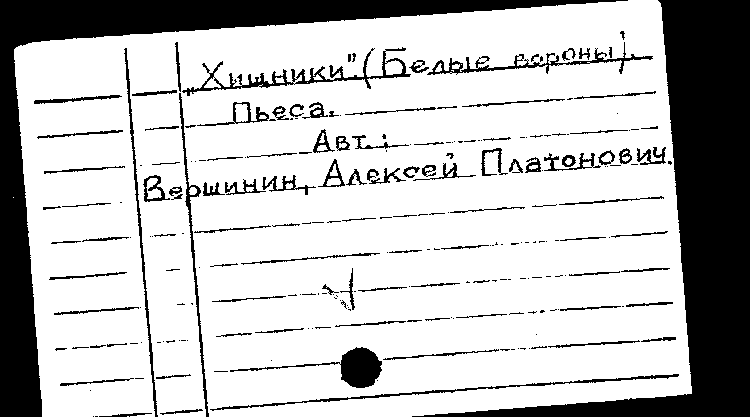 „Хищники". (Белые вороны).
Пьеса.
Авт.:
Вершинин, Алексей Платонович.